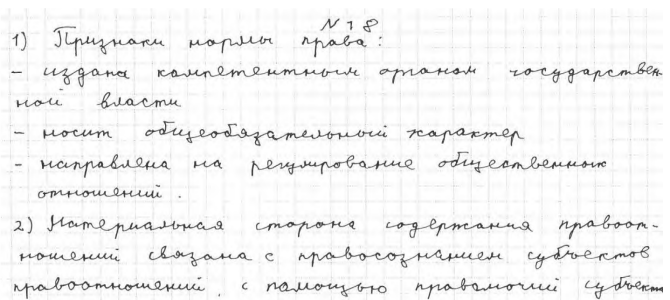 N 18
1) Признаки нормы права:
- издана компетентным органом государствен-
ной власти
- носит общеобязательный характер
- направлена на регулирование общественных
отношений.
2) Материальная сторона содержания правоот-
ношений связана с правосознанием субъектов
правоотношений, с помощью правомочий субъект